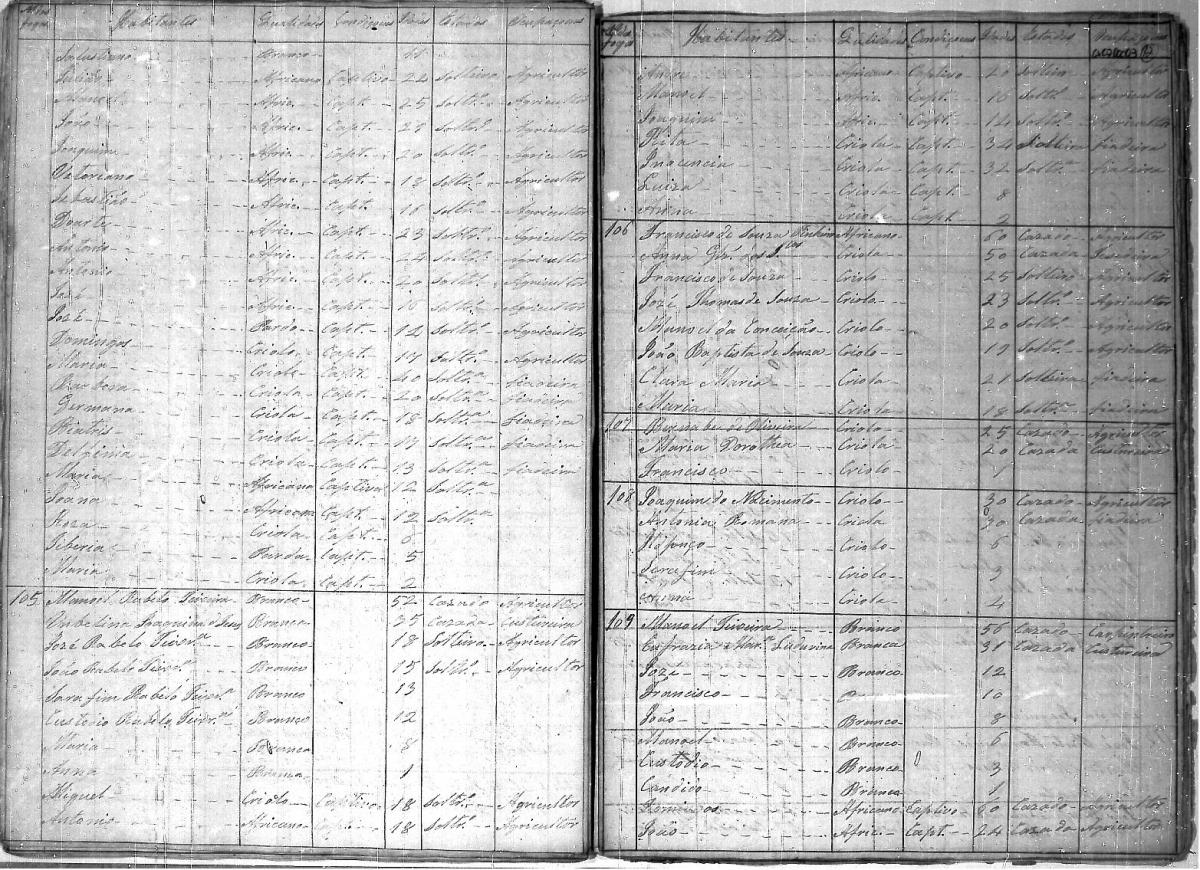 Habitantes Qualidades Condiçoens Idades Estados Ocupaçoens
Salustiano Branco
Africano Captivo 22 Solteiro Agricultor
Manoel Afric. Capt. 25 Soltr.º Agricultor
João Afric. Capt. 27 Soltr.º Agricultor
Joaquim Afric. Capt. 20 Soltr.º Agricultor
Vetoriano Afric. Capt. 13 Soltr.º Agricultor
Sebastião Afric. Capt. 16 Soltr.º Agricultor
Duarte Afric. Capt. 23 Soltr.º Agricultor
Antonio Afric. Capt. 24 Soltr.º Agricultor
Antonio Afric. Capt. 20 Soltr.º Agricultor
José Afric. Capt. 16 Soltr.º Agricultor
José Pardo Capt. 12 Soltr.º Agricultor
Domingos Criolo Capt. 17 Soltr.º Agricultor
Maria Criola Capt. 40 Soltr.ª fiadeira
Barbosa Criola Capt. 20 Soltr.ª fiadeira
Germana Criola Capt. 18 Soltr.ª fiadeira
Criola Capt. 17 Soltr.ª fiadeira
Delfinia Criola Capt. 13 Soltr.ª fiadeira
Maria Africana Captiva 12 Soltr.ª
Joana Africana Capt. 12 Soltr.ª
Roza Criola Capt. 6
Parda Capt. 5
Maria Criola Capt. 2
105 Manoel Rabelo Teixeira Branco 52 Cazado Agricultor
Umbelina Joaquina Branca 35 Cazada Custureira
José Rabelo Teixr.ª Branco 18 Solteiro Agricultor
João Rabelo Teixr.ª Branco 15 Soltr.º Agricultor
Sarafim Rabelo Teixr.ª Branco 13
Custodio Rabelo Teixr.ª Branco 12
Maria Branca 8
Anna Branca 1
Miguel Criolo Captivo 18 Soltr.º Agricultor
Antonio Africano Capt. 18 Soltr.º Agricultor
fogos Habitantes Qualidades Condiçoens Idades Estados Ocupaçoens
Africano Captivo 20 Solteiro Agricultor
Manoel Afric. Capt. 16 Soltr.º Agricultor
Joaquim Afric. Capt. 14 Soltr.º Agricultor
Rita Criola Capt. 34 Solteira fiadeira
Inocencia Criola Capt. 32 Soltr.ª fiadeira
Luiza Criola Capt. 8
Criola Capt. 2
106 Francisco de Souza Africano 60 Cazado Agricultor
Anna Criola 50 Cazada
Francisco de Souza Criolo 25 Solteiro Agricultor
Jozé Thomas de Souza Criolo 23 Soltr.º Agricultor
Manoel da Conceição Criolo 20 Soltr.º Agricultor
João Baptista de Souza Criolo 19 Soltr.º Agricultor
Clara Maria Criola 21 Solteira fiadeira
Maria Criola 18 Soltr.ª fiadeira
107 de Oliveira Criolo 25 Cazado Agricultor
Maria Dorothea Criola 20 Cazada Custureira
Francisco Criolo 1
108 Joaquim do Nascimento Criolo 30 Cazado Agricultor
Antonia Romana Criola 30 Cazada fiadeira
Criolo 6
Serafim Criolo 3
Criola 4
109 Manoel Teixeira Branco 56 Cazado Carpinteiro
Eufrazia Branca 31 Cazada Custureira
Jozé Branco 12
Francisco 10
João Branco 8
Manoel Branco 6
Custodio Branco 3
Candido Branco 1
Domingos Africano Captivo 60 Cazado Agricultor
João Afric. Capt. 24 Cazado Agricultor